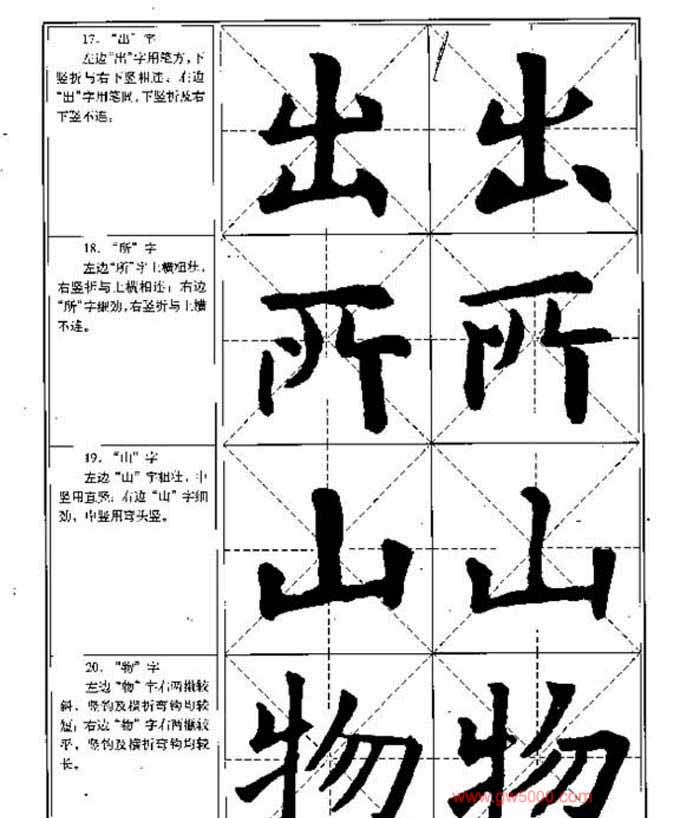 17. “出” 字
左边“出”字用笔方，下
竖折与右下竖相连。右边
“出”字用笔圆，下竖折及右
下竖不连。
出 出
18. “所” 字
左边“所”字上横粗壮，
右竖折与上横相连；右边
“所”字细劲，右竖折与上横
不连。
所 所
19. “山” 字
左边“山”字粗壮，中
竖用直竖；右边“山”字细
劲，中竖用弯头竖。
山 山
20. “物” 字
左边“物”字右两撇较
斜，竖钩及横折弯钩均较
短；右边“物”字右两撇较
平，竖钩及横折弯钩均较
长。
物 物
www.gw5000.com